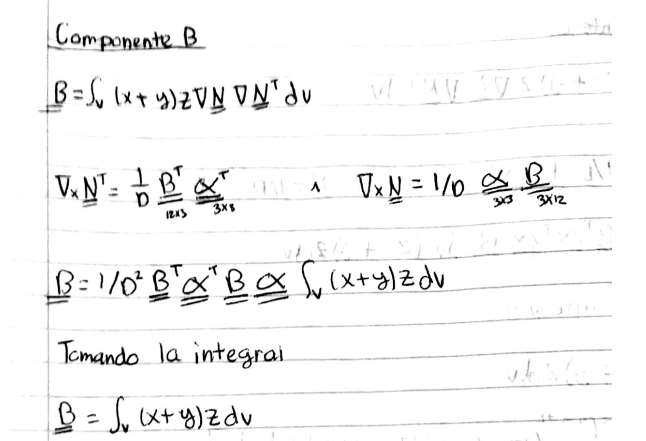 Componente B
B = ∫v (x+y)z∇N ∇Nᵀ dv
∇xNᵀ = 1/D Bᵀ αᵀ ∧ ∇xN = 1/D α B
12x3 3x3 3x3 3x12
B = 1/D² Bᵀ αᵀ B α ∫v (x+y)z dv
Tomando la integral
B = ∫v (x+y)z dv